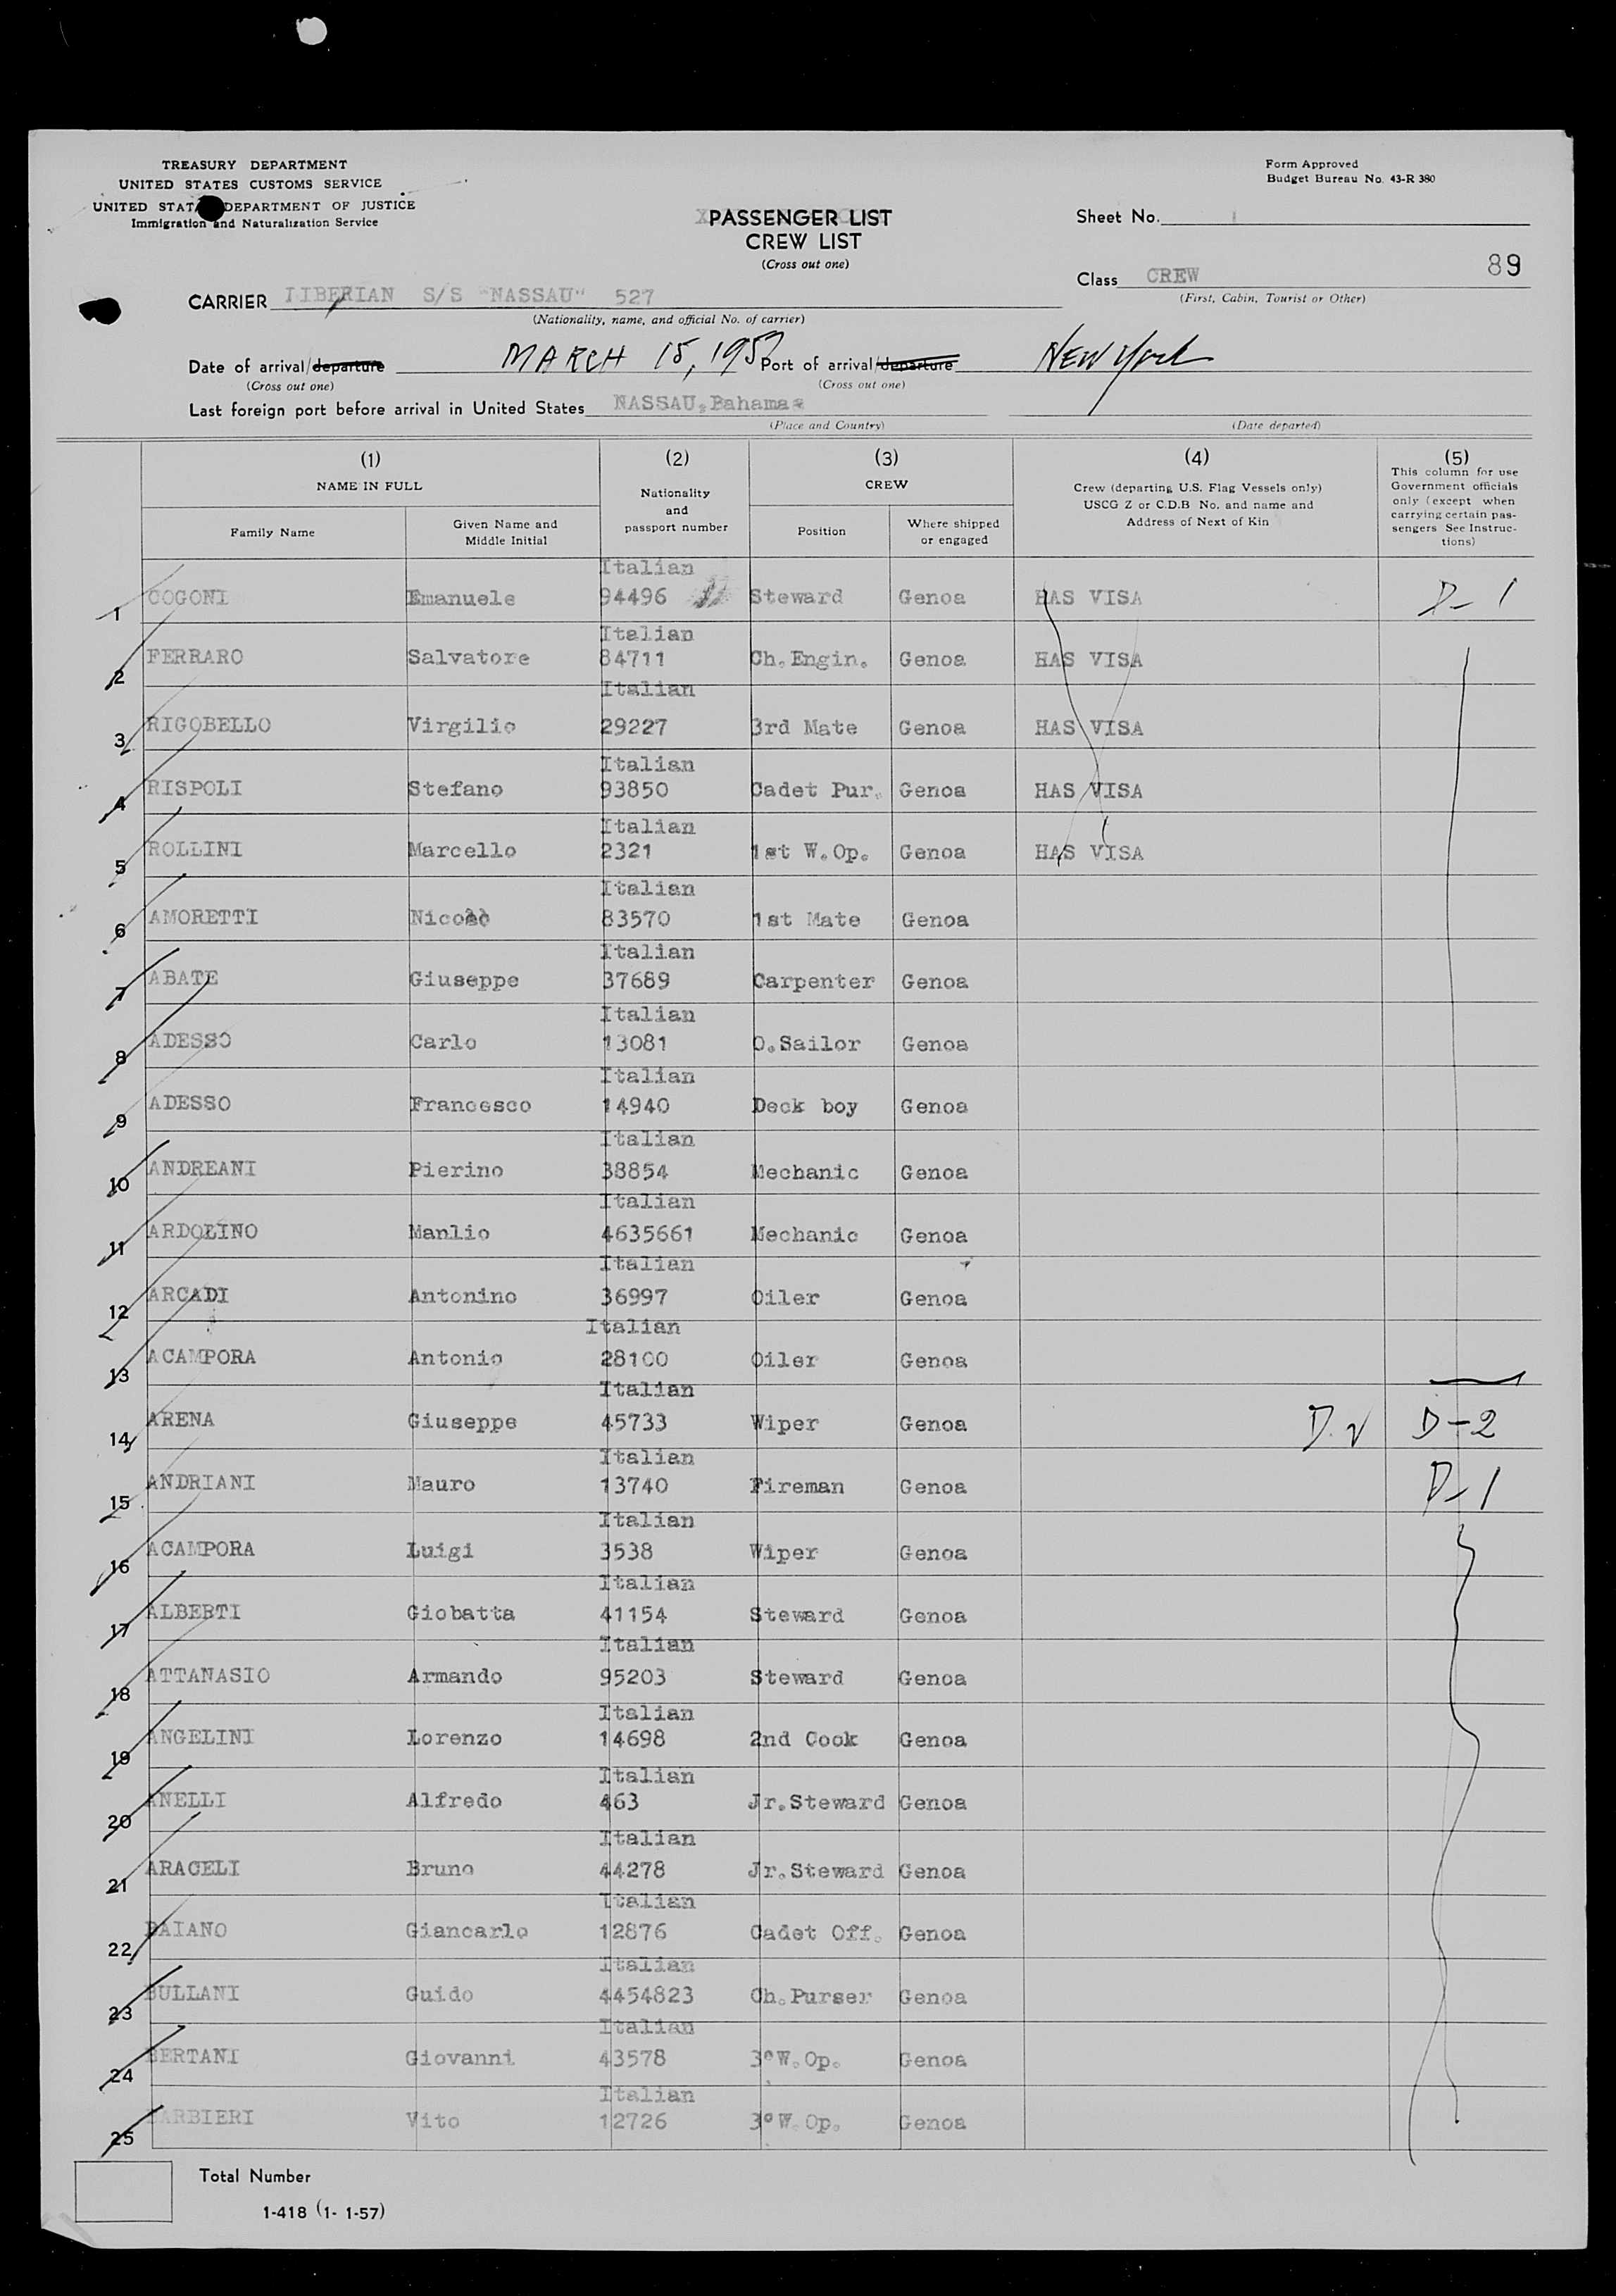 TREASURY DEPARTMENT
UNITED STATES CUSTOMS SERVICE
UNITED STAT DEPARTMENT OF JUSTICE
Immigration and Naturalization Service
Form Approved
Budget Bureau No. 43-R 380
PASSENGER LIST
CREW LIST
(Cross out one)
Sheet No. 1
89
Class CREW
(First, Cabin, Tourist or Other)
CARRIER LIBERIAN S/S "NASSAU" 527
(Nationality, name, and official No. of carrier)
Date of arrival/departure MARCH 15, Port of arrival/departure New York
(Cross out one) (Cross out one)
Last foreign port before arrival in United States NASSAU, Bahamas
(Place and Country) (Date departed)
(1) (2) (3) (4) (5)
NAME IN FULL
Family Name
Given Name and
Middle Initial
Nationality
and
passport number
CREW
Position
Where shipped
or engaged
Crew (departing U.S. Flag Vessels only)
USCG Z or C.D.B No. and name and
Address of Next of Kin
This column for use
Government officials
only (except when
carrying certain pas-
sengers See Instruc-
tions)
Italian
1 COGONI Emanuele 94496 Steward Genoa HAS VISA D-1
Italian
2 FERRARO Salvatore 84711 Ch.Engin. Genoa HAS VISA
Italian
3 RIGOBELLO Virgilio 29227 3rd Mate Genoa HAS VISA
Italian
4 RISPOLI Stefano 93850 Cadet Pur. Genoa HAS VISA
Italian
5 ROLLINI Marcello 2321 1st W.Op. Genoa HAS VISA
Italian
6 AMORETTI 83570 1st Mate Genoa
Italian
7 ABATE Giuseppe 37689 Carpenter Genoa
Italian
8 ADESSO Carlo 13081 O.Sailor Genoa
Italian
9 ADESSO Francesco 14940 Deck boy Genoa
Italian
10 ANDREANI Pierino 38854 Mechanic Genoa
Italian
11 ARDOLINO Manlio 4635661 Mechanic Genoa
Italian
12 ARCADI Antonino 36997 Oiler Genoa
Italian
13 ACAMPORA Antonio 28100 Oiler Genoa
Italian
14 ARENA Giuseppe 45733 Wiper Genoa D-2
Italian
15 ANDRIANI Mauro 13740 Fireman Genoa D-1
Italian
16 ACAMPORA Luigi 3538 Wiper Genoa
Italian
17 ALBERTI Giobatta 41154 Steward Genoa
Italian
18 ATTANASIO Armando 95203 Steward Genoa
Italian
19 ANGELINI Lorenzo 14698 2nd Cook Genoa
Italian
20 ANELLI Alfredo 463 Jr.Steward Genoa
Italian
21 ARACELI Bruno 44278 Jr.Steward Genoa
Italian
22 BAIANO Giancarlo 12876 Cadet Off. Genoa
Italian
23 BULLANI Guido 4454823 Ch.Purser Genoa
Italian
24 BERTANI Giovanni 43578 3°W.Op. Genoa
Italian
25 BARBIERI Vito 12726 3°W.Op. Genoa
Total Number
1-418 (1- 1-57)